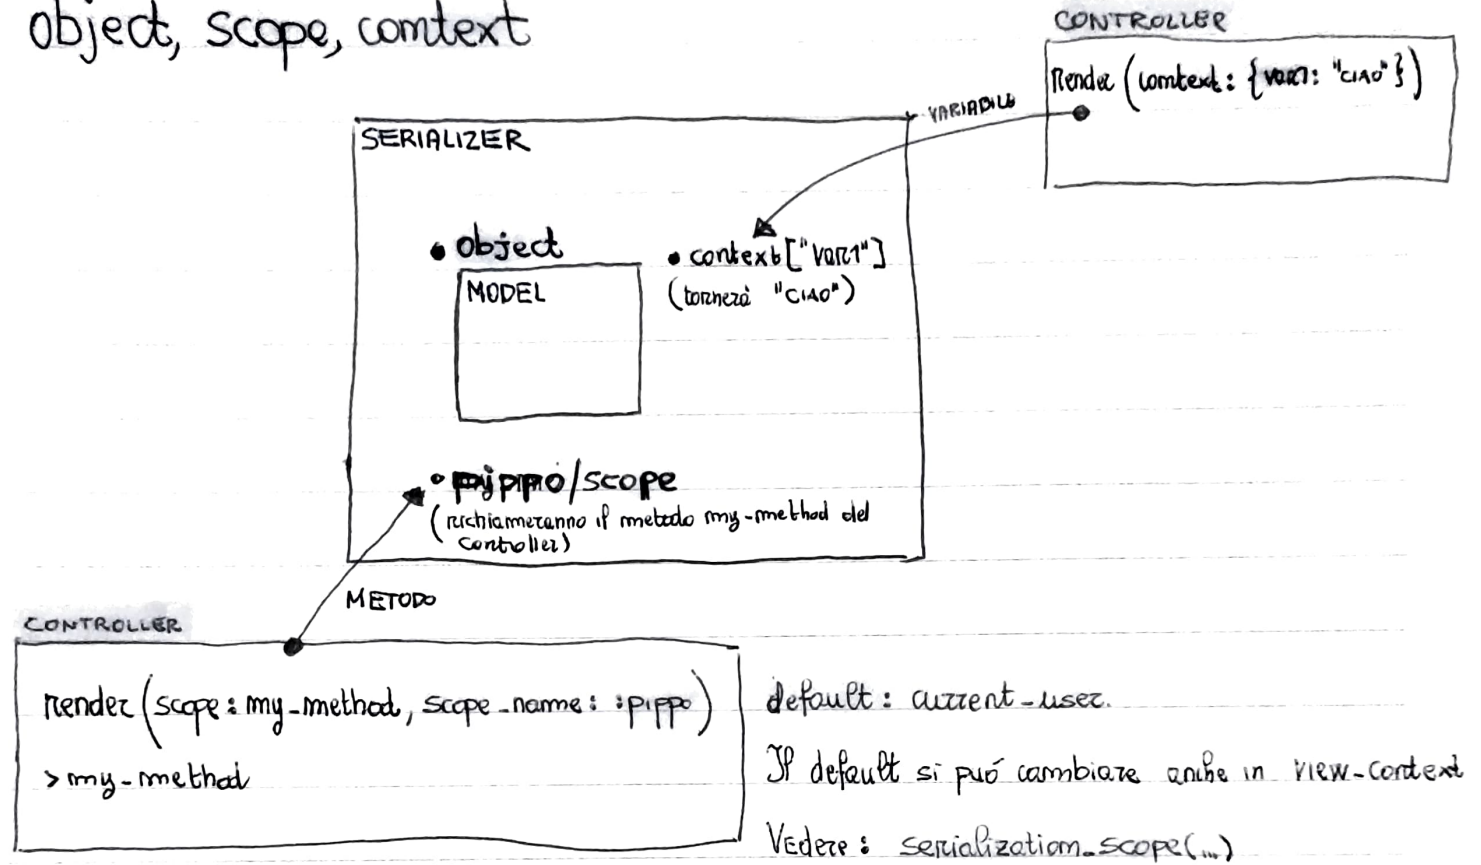 object, scope, context
CONTROLLER
render (context: {var1: "CIAO"})
VARIABILE
SERIALIZER
• object
MODEL
• context["var1"]
(tornerà "CIAO")
• pippo/scope
(richiameranno il metodo my-method del
controller)
METODO
CONTROLLER
render (scope: my_method, scope_name: :pippo)
> my-method
default: current-user.
Il default si può cambiare anche in view-context
Vedere: serialization_scope(...)